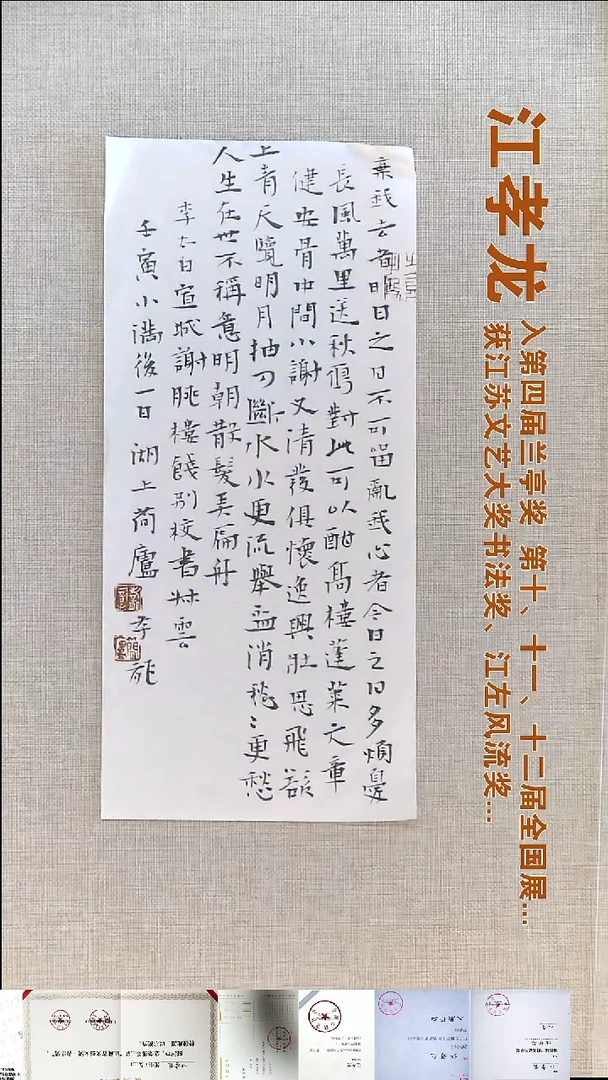 江孝龙
入第四届兰亭奖 第十、十一、十二届全国展...
获江苏文艺大奖书法奖、江左风流奖...
棄我去者昨日之日不可留亂我心者今日之日多煩憂
長風萬里送秋雁對此可以酣高樓蓬萊文章
建安骨中間小謝又清發俱懷逸興壯思飛欲
上青天覽明月抽刀斷水水更流舉盃消愁〻更愁
人生在世不稱意明朝散髮弄扁舟
李太白宣城謝朓樓餞別校書叔雲
壬寅小滿後一日湖上荷廬孝龍